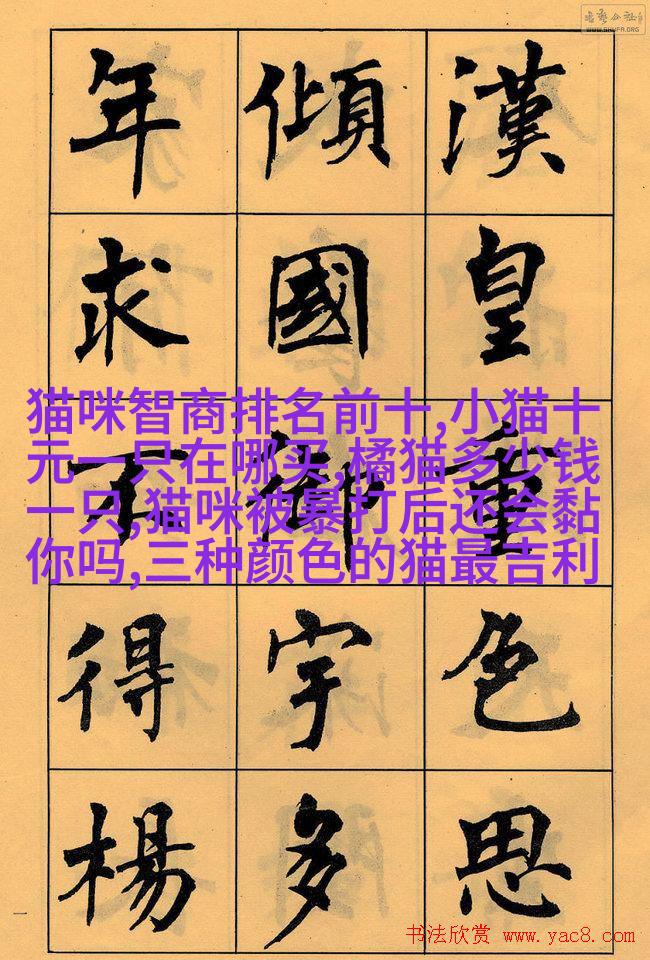 漢皇重色思
傾國御宇多
年求不得楊
猫咪智商排名前十,小猫十
元一只在哪买,橘猫多少钱
一只,猫咪被暴打后还会黏
你吗,三种颜色的猫最吉利
一
书法欣赏 www.yac8.com
WWW.SHUFA.ORG